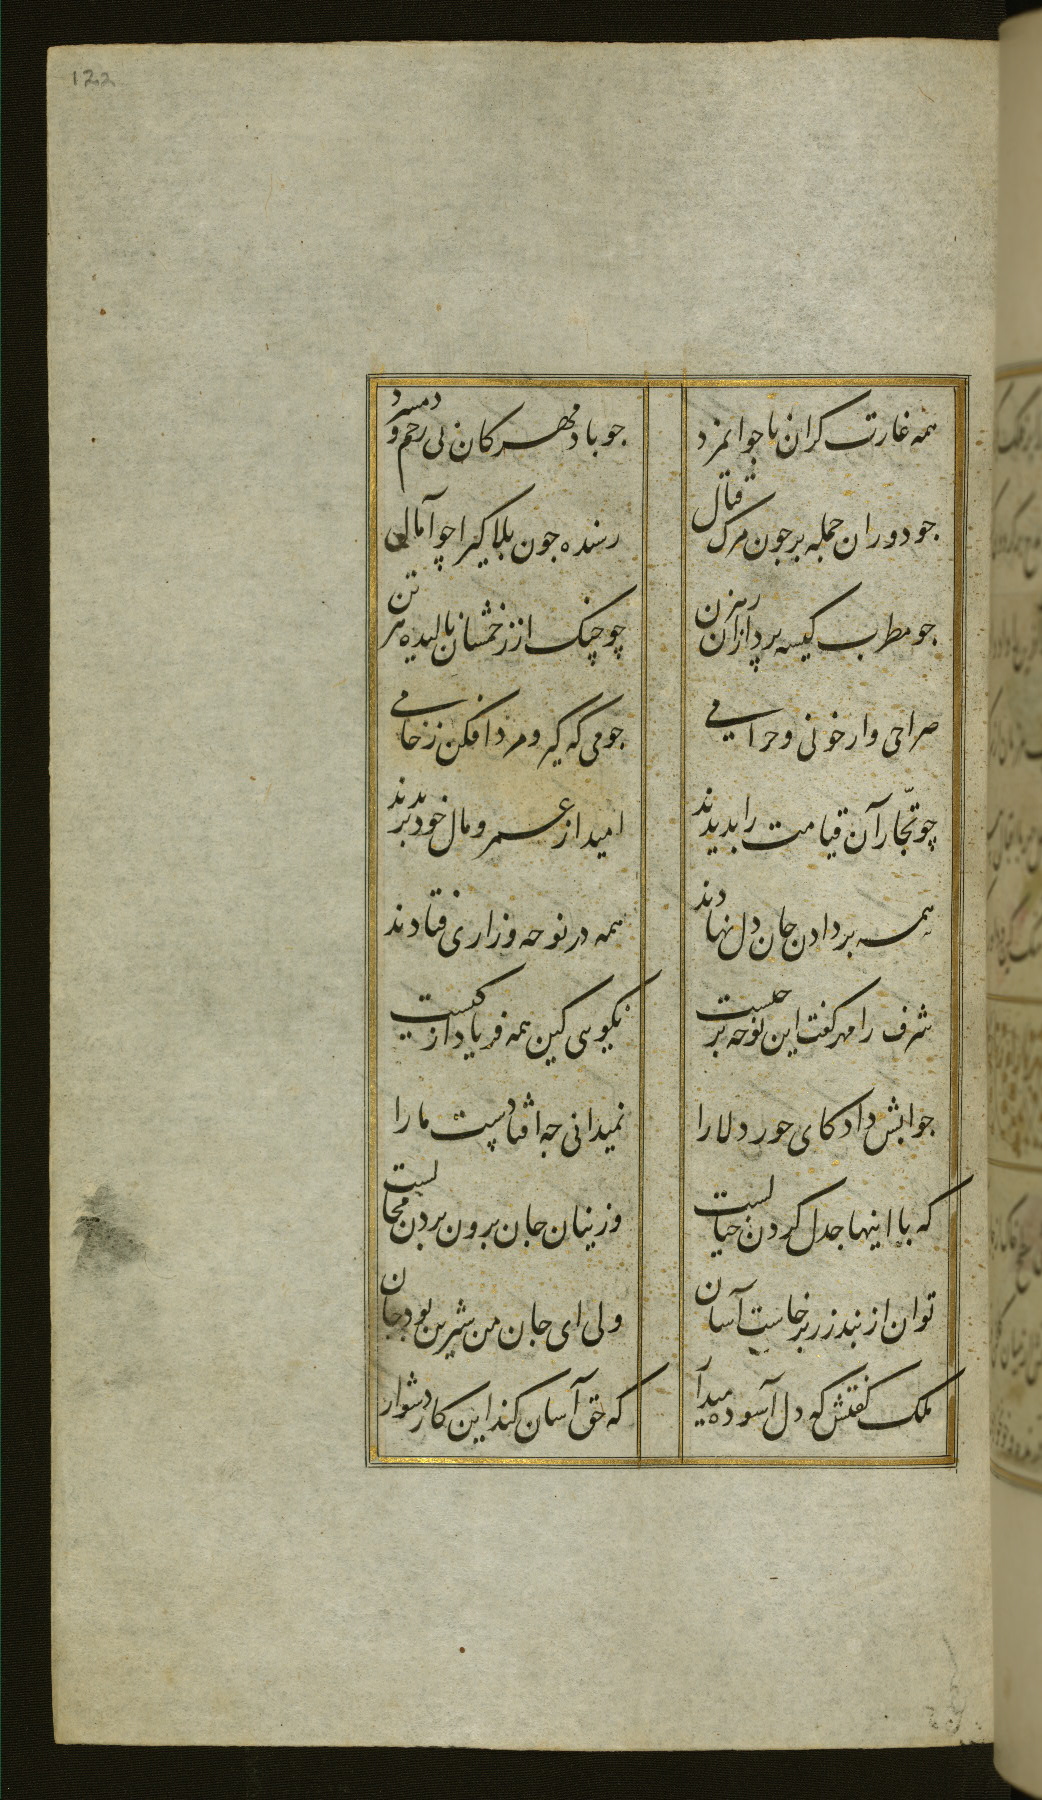 122
همه غارت کران ناجوانمرد
جو باد مهرکان بی رحم و دمسرد
جو دوران جمله بر جون مرک قتال
رسنده جون بلا کیرا چو آمال
جو مطرب کیسه پردازان رهزن
چو چنک از زخمشان نالیده هر تن
صراحی وار خونی و حرامی
جو می که کیر و مرد افکن ز خامی
چو تجّار آن قیامت را بدیدند
امید از عمر و مال خود بریدند
همه بر دادن جان دل نهادند
همه در نوحه و زاری فتادند
شرف را مهر کفت این نوحه بر جیست
نکویی کین همه فریاد از کیست
جوابش داد کای حور دلارا
نمیدانی جه افتادست ما را
که با اینها جدل کردن خیالست
وزینان جان برون بردن محالست
توان از بند زر برخاست آسان
ولی ای جان من شیرین بود جان
ملک کفتش که دل آسوده میدار
که حق آسان کند این کار دشوار